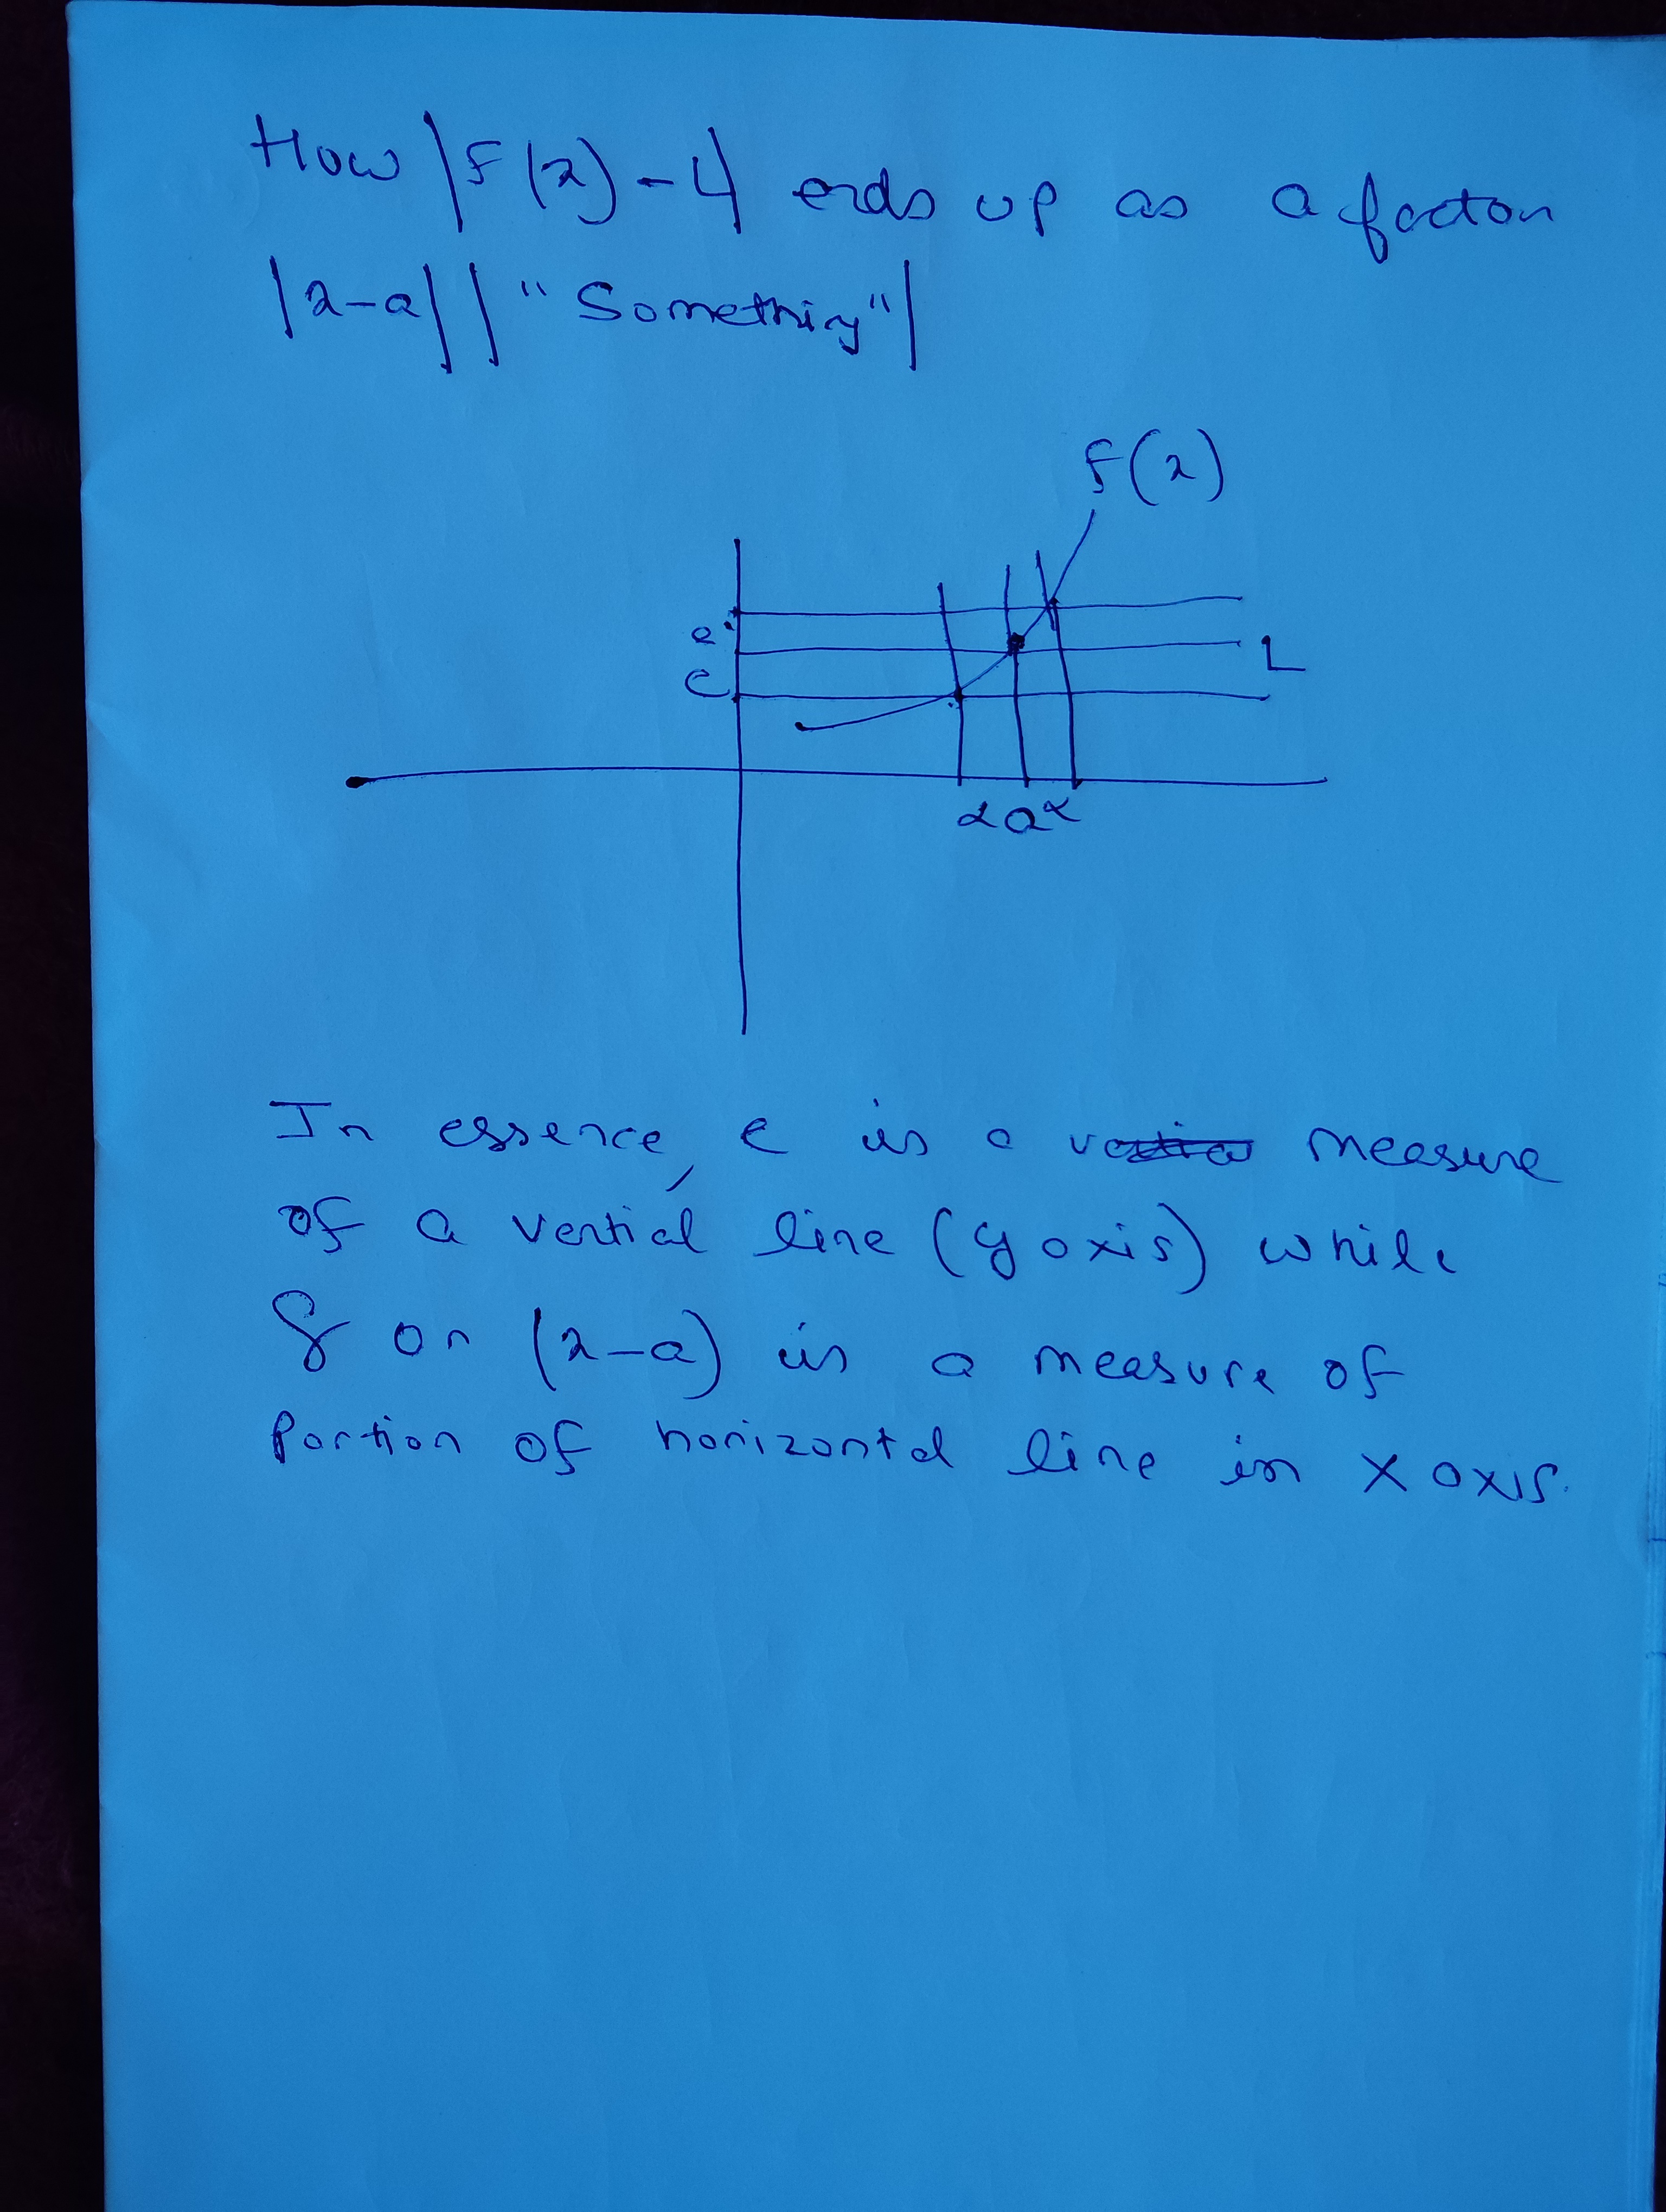 How |f(x)-L| ends up as a factor
|x-a| | "Something"|
f(x)
e
L
e
x a x
In essence, e is a measure
of a vertical line (y axis) while
δ or (x-a) is a measure of
portion of horizontal line in x axis.